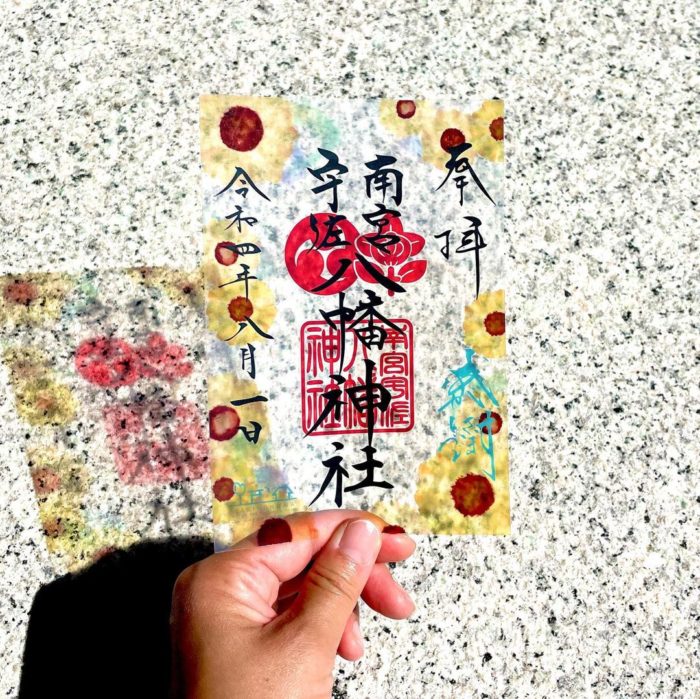 奉拝
南宮
宇佐
八幡神社
南宮宇佐
神社
令和四年八月一日